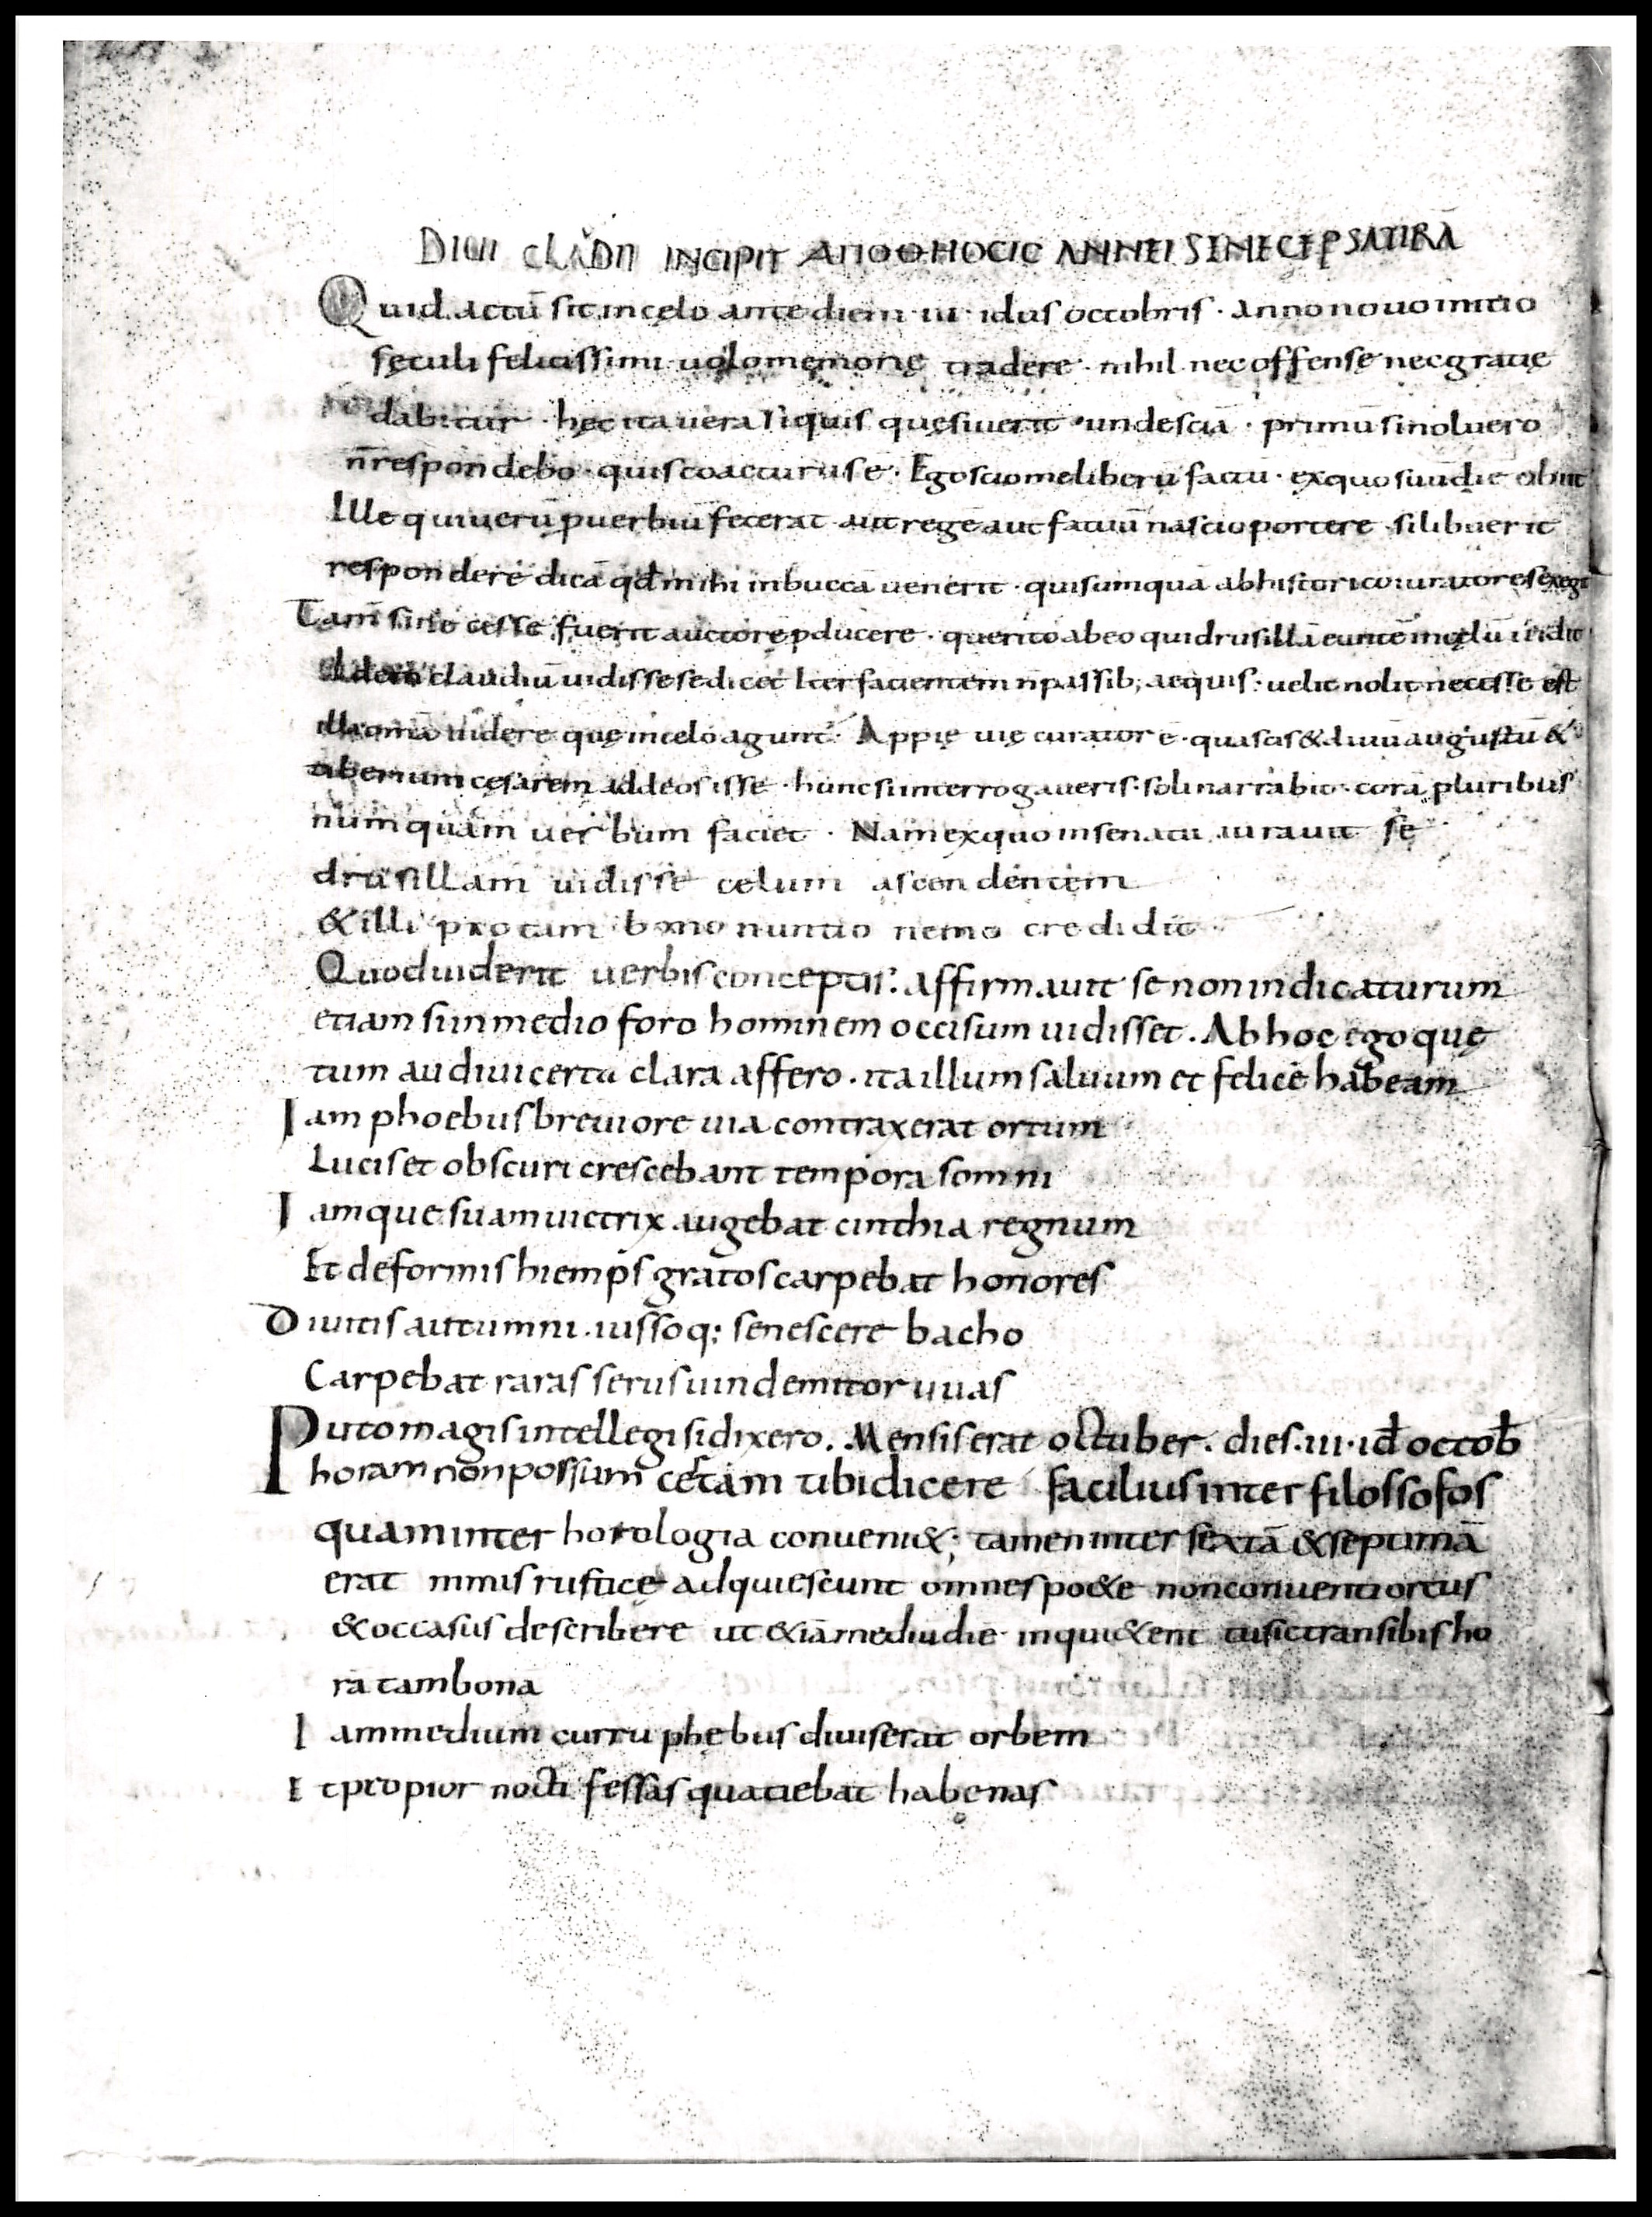 DIUI CLAÙDII INCIPIT ΑΠΟΘΗΟCΙC ANNEI SENECE P SATIRĀ
Quid actū sit in cęlo ante diem · iii · idus octobris · Anno nouo initio
sęculi felicissimi uolo memorię tradere · nihil nec offensę nec gratię
dabitur · hęc ita uera si quis quęsiuerit · unde sciā · primū si noluero
n̄ respondebo · quis coacturus ē · Ego scio me liberū factū · ex quo suū diē obiit
Ille qui uerū ꝓuerbiū fecerat aut regē aut fatuū nasci oportere · si libuerit
respondere dicā qđ mihi in buccā uenerit · quis umquā ab historico iuratores exegit
Tam̄ si necesse fuerit auctorē ꝓducere · querito ab eo qui drusillā euntē in cęlū uidit
Idem claudiū uidisse se dicet Iter facientem n̄ passib; aequis · uelit nolit necesse est
illi omīa uidere quę in celo aguntʳ Appię uię curator ē · qua scis & diuū augustū &
tiberium cęsarem ad deos isse · hunc si interrogaueris · soli narrabit · corā pluribus
numquam uerbum faciet · Nam ex quo in senatu iurauit sę
drusillam uidisse celum ascendentem
& illi pro tam bono nuntio nemo credidit
Quod uiderit uerbis conceptis · affirmauit se non indicaturum
etiam si in medio foro hominem occisum uidisset . Ab hoc ego quę
tum audiui certa clara affero . ita illum saluum et felicē habeam
Iam phoebus breuiore uia contraxerat ortum
Lucis et obscuri crescebant tempora somni
Iamque suam uictrix augebat cinthia regnum
Et deformis hiemps gratos carpebat honores
Diuitis autumni . iussoq; senescere bacho
Carpebat raras serus uindemitor uuas
Puto magis intellegi si dixero . Mensis erat october . dies · iii · iđ octob̄
horam non possum certam tibi dicere facilius inter filossofos
quam inter horologia conueni&; tamen inter sextā & septimā
erat nimis rustice adquiescunt omnes po&e non contenti ortus
& occasus describere ut &iā mediū diē inqui&ent tu sic transibis ho
rā tam bonā
Iam medium curru phębus diuiserat orbem
Et propior nocti fessas quatiebat habenas